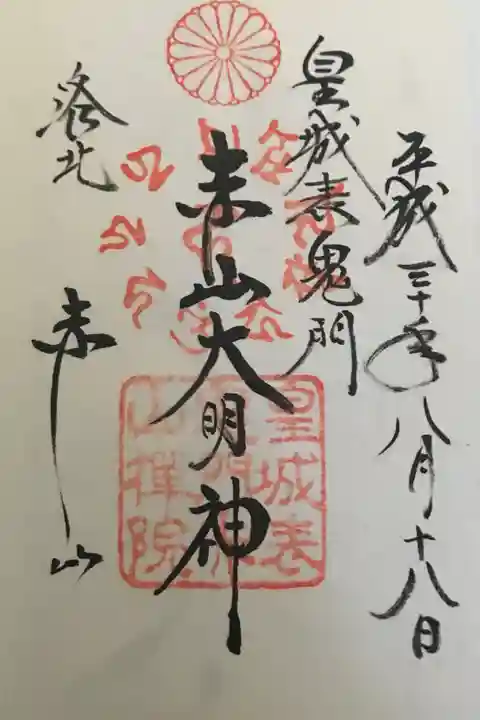 平成三十年八月十八日
皇城表鬼門
赤山大明神
洛北
赤山
皇城表
山禅院